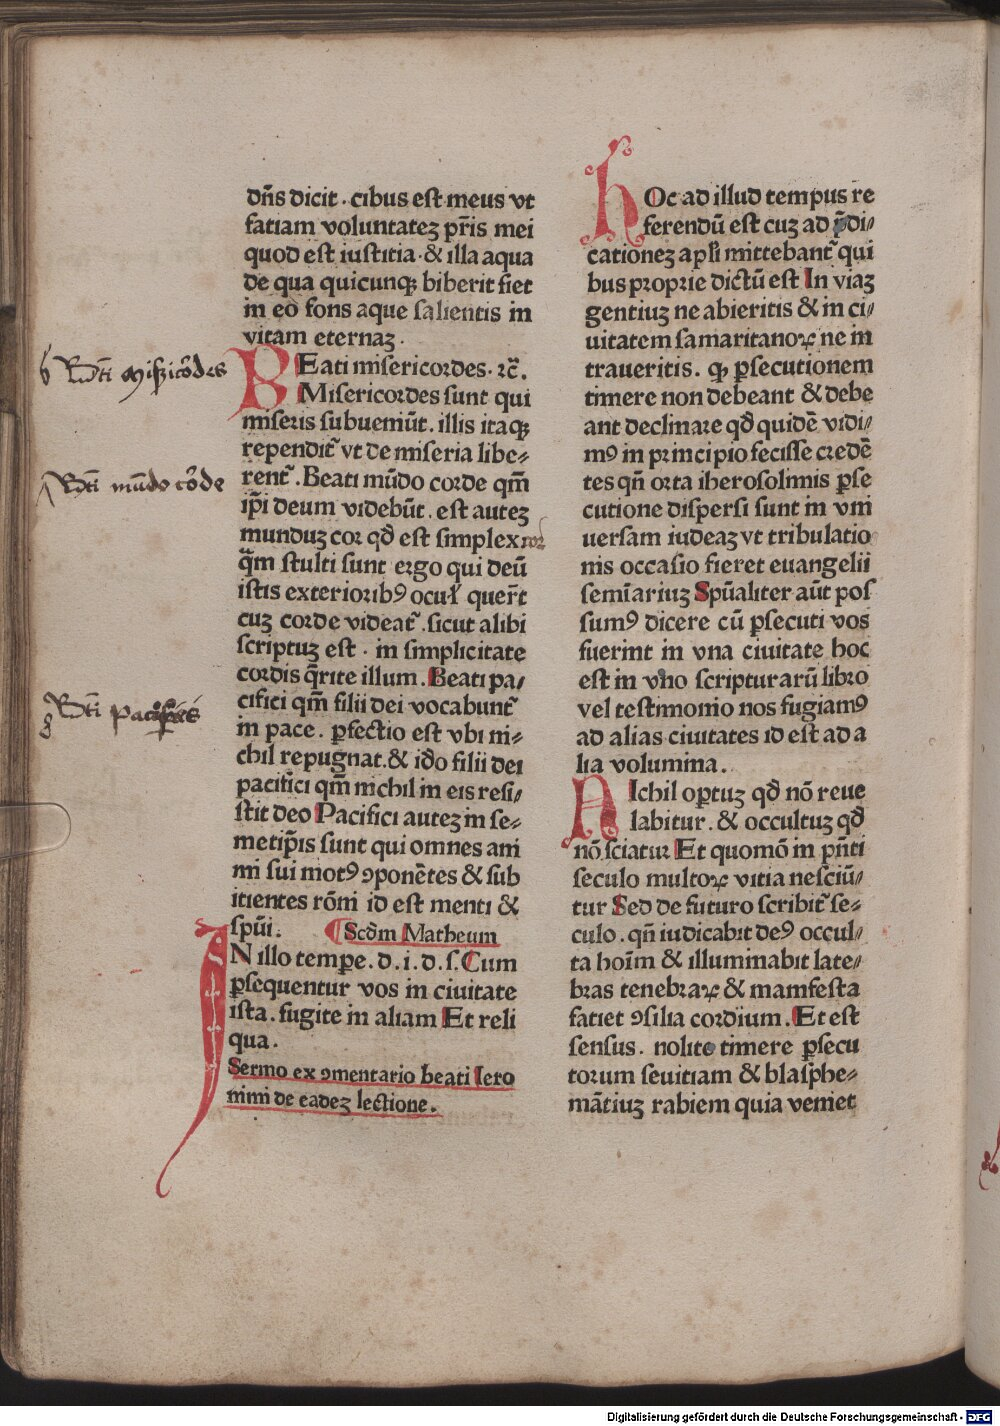 dn̄s dicit . cibus est meus vt
fatiam voluntateꝫ pr̄is mei
quod est iustitia . & illa aqua
de qua quicunqꝫ biberit fiet
in eo fons aque salientis in
vitam eternaꝫ .
BEati misericordes . ⁊c̄ .
Misericordes sunt qui
miseris subueniūt . illis itaqꝫ
rependit᷑ vt de miseria libe⸗
rent᷑ . Beati mūdo corde qm̄
ip̄i deum videbūt . est auteꝫ
munduꝫ cor qd̄ est simplex cor
q̄m stulti sunt ergo qui deū
istis exteriorib⁹ ocul̵ quer̄t
cuꝫ corde videat᷑ . sicut alibi
scriptuꝫ est . in simplicitate
cordis q̄rite illum . Beati pa⸗
cifici qm̄ filii dei vocabunt᷑
in pace . ꝑfectio est vbi ni⸗
chil repugnat . & iḋo filii dei
pacifici qm̄ nichil in eis resi⸗
stit deo Pacifici auteꝫ in se⸗
metip̄is sunt qui omnes ani
mi sui mot⁹ ꝯponētes & sub
iitientes rōni id est menti &
spūi .
Scd̄m Matheum
IN illo temꝑe . d . i . d . s . Cum
ꝑsequentur vos in ciuitate
ista . fugite in aliam Et reli
qua .
Sermo ex ꝯmentario beati Iero
nimi de eadeꝫ lectione .
hOc ad illud tempus re
ferendū est cuꝫ ad p̄di⸗
cationeꝫ apl̄i mittebant᷑ qui
bus proprie dictū est In viaꝫ
gentiuꝫ ne abieritis & in ci⸗
uitatem samaritanoꝝ ne in
traueritis . qꝫ ꝑsecutionem
timere non debeant & debe
ant declinare qd̄ quidē vidi⸗
m⁹ in principio fecisse credē
tes qn̄ orta iherosolimis ꝑse
cutione dispersi sunt in vni
uersam iudeaꝫ vt tribulatio
nis occasio fieret euangelii
semīariuꝫ Spūaliter aūt pos
sum⁹ dicere cū ꝑsecuti vos
fuerint in vna ciuitate hoc
est in vno scripturarū libro
vel testimonio nos fugiam⁹
ad alias ciuitates id est ad a
lia volumina .
NIchil oꝑtuꝫ qd̄ nō reue
labitur . & occultuꝫ qd̄
nō sciatur Et quomō in pn̄ti
seculo multoꝝ vitia nesciū⸗
tur Sed de futuro scribit᷑ se⸗
culo . qn̄ iudicabit de⁹ occul⸗
ta hoīm & illuminabit late⸗
bras tenebraꝝ & manifesta
fatiet ꝯsilia cordium . Et est
sensus . nolite timere ꝑsecu
torum seuitiam & blasphe⸗
mātiuꝫ rabiem quia veniet
Bt̄i mundo corde
Bt̄i pacifici
Digitalisierung gefördert durch die Deutsche Forschungsgemeinschaft - DFG